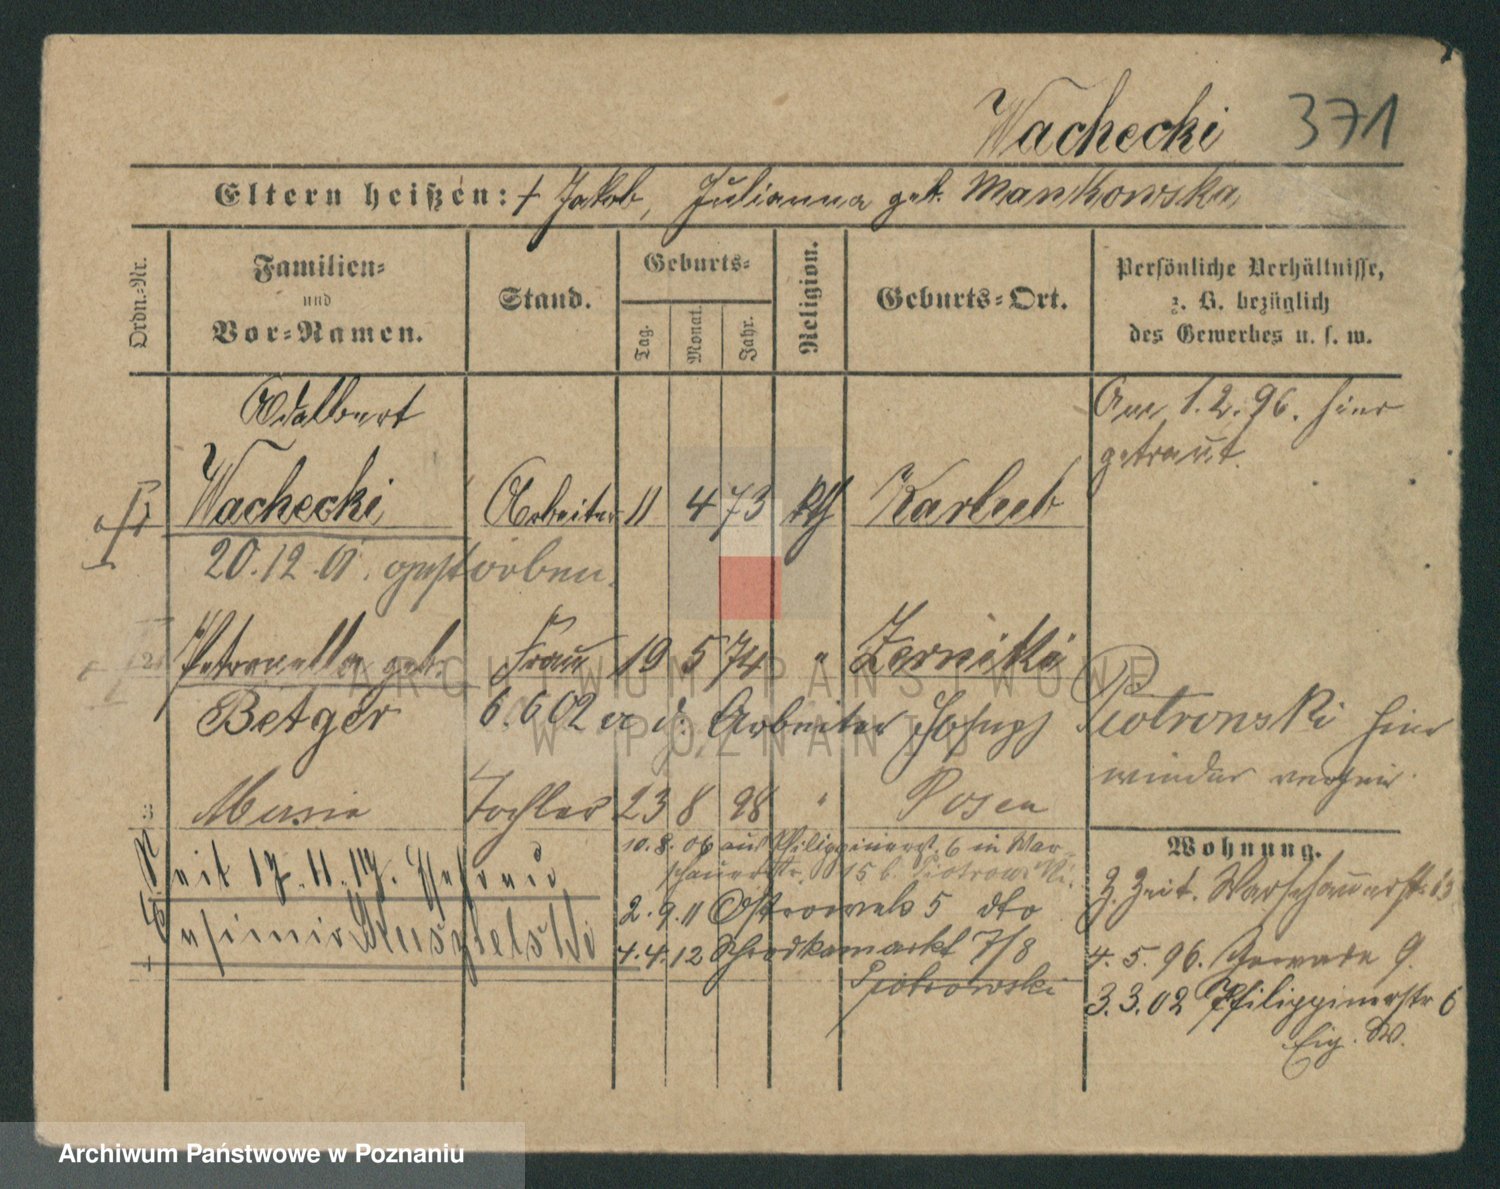 Wachecki 371
Eltern heißen: † Jakob, Julianna geb. Mankowska
Ordn.-Nr.
Familien-
und
Vor-Namen.
Stand.
Geburts-
Tag.
Monat.
Jahr.
Religion.
Geburts-Ort.
Persönliche Verhältnisse,
z. B. bezüglich
des Gewerbes u. s. w.
Adalbert
Wachecki Arbeiter 11 4 73 kth
20.12.01. gestorben.
Am 1.2.96. hier
getraut.
Petronella geb. Frau 19 5 74 " Zerniki
Betger 6.6 02 Arbeiter Joseph Piotrowski hier
wieder
3 Maria Tochter 23 8 98 " Posen
10.8.06 aus Philippinerst. 6 in War-
schauerstr. 15 b. Piotrowski.
seit 17.11.17. Ehefrau
2.9.11 Ostrowek 5 dto
4.4.12 Schrodkamarkt 7/8
Piotrowski
Wohnung.
Z. Zeit. Warschauerstr. 13
4.5.96. 9.
3.3.02 Philippinerstr 6
ARCHIWUM PAŃSTWOWE
W POZNANIU
Archiwum Państwowe w Poznaniu